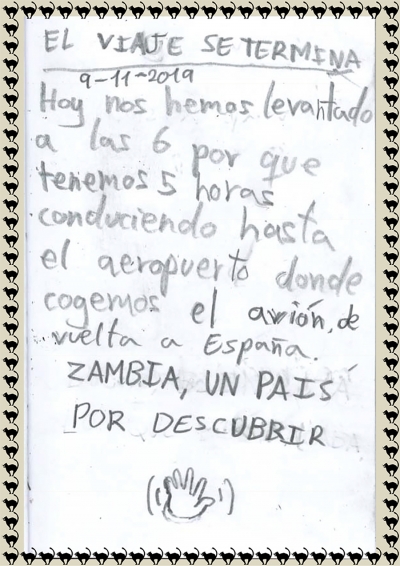 EL VIAJE SE TERMINA
9-11-2019
Hoy nos hemos levantado
a las 6 por que
tenemos 5 horas
conduciendo hasta
el aeropuerto donde
cogemos el avión, de
vuelta a España.
ZAMBIA, UN PAIS
POR DESCUBRIR